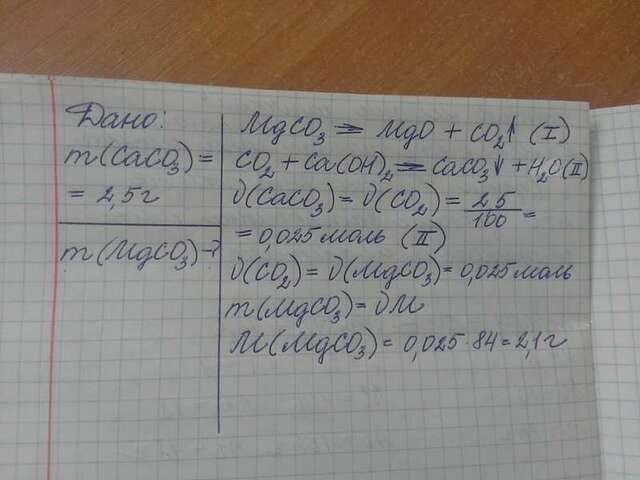 Дано:
m(CaCO₃) =
= 2,5г
m(MgCO₃)-?
MgCO₃ = MgO + CO₂↑ (I)
CO₂ + Ca(OH)₂ = CaCO₃↓ + H₂O (II)
ν(CaCO₃) = ν(CO₂) = 2,5/100 =
= 0,025 моль (II)
ν(CO₂) = ν(MgCO₃) = 0,025 моль
m(MgCO₃) = νM
M(MgCO₃) = 0,025·84 = 2,1г